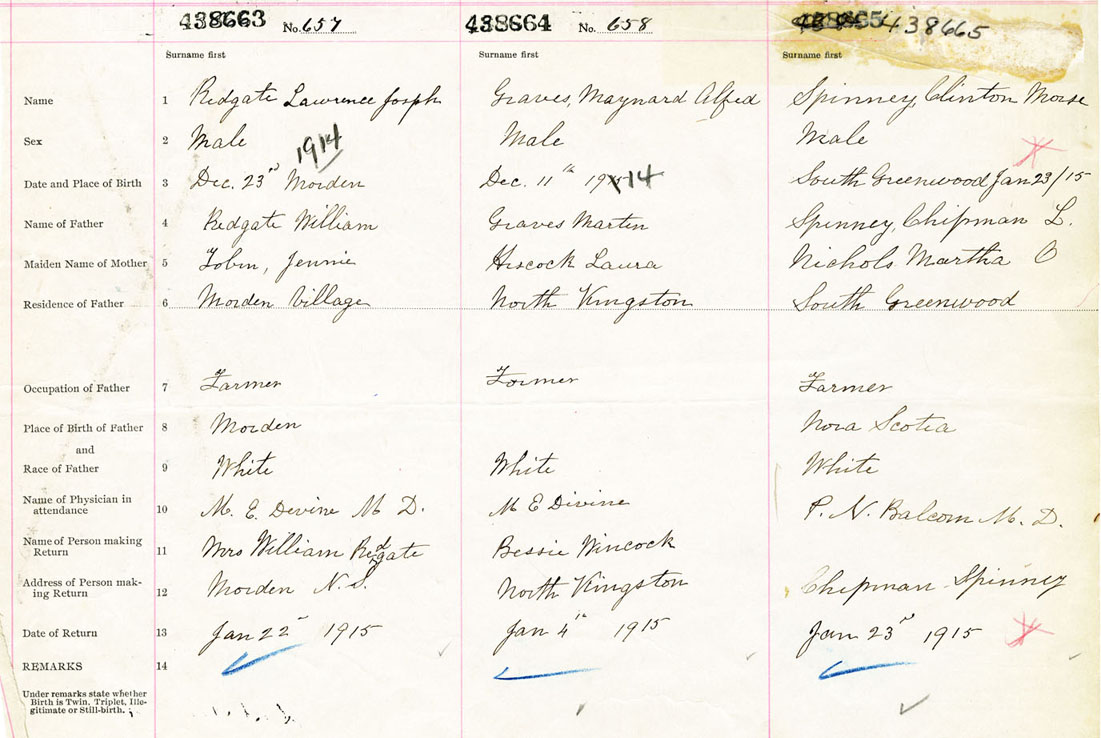 438663 No. 657 438664 No. 658 438665
Surname first Surname first Surname first
Name 1 Redgate Lawrence Joseph Graves, Maynard Alfred Spinney, Clinton Morse
Sex 2 Male Male Male
1914
Date and Place of Birth 3 Dec. 23rd Morden Dec. 11th 1914 South Greenwood Jan 23/15
Name of Father 4 Redgate William Graves Martin Spinney, Chipman L.
Maiden Name of Mother 5 Tobin, Jennie Hiscock Laura Nichols Martha O
Residence of Father 6 Morden Village North Kingston South Greenwood
Occupation of Father 7 Farmer Farmer Farmer
Place of Birth of Father 8 Morden Nova Scotia
and
Race of Father 9 White White White
Name of Physician in
attendance 10 M. E. Devine M D. M E Divine P. N. Balcom M. D.
Name of Person making
Return 11 Mrs William Redgate Bessie Wincock
Address of Person mak-
ing Return 12 Morden N. S. North Kingston Chipman Spinney
Date of Return 13 Jan 22nd 1915 Jan 4th 1915 Jan 23rd 1915
REMARKS 14
Under remarks state whether
Birth is Twin, Triplet, Ille-
gitimate or Still-birth.